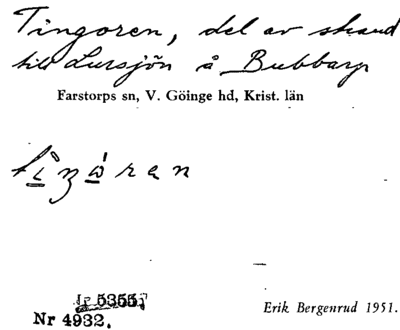 Tingoren, del av strand
till Lursjön å Bubbarp
Farstorps sn, V. Göinge hd, Krist. län
Nr 4932.
Erik Bergenrud 1951.